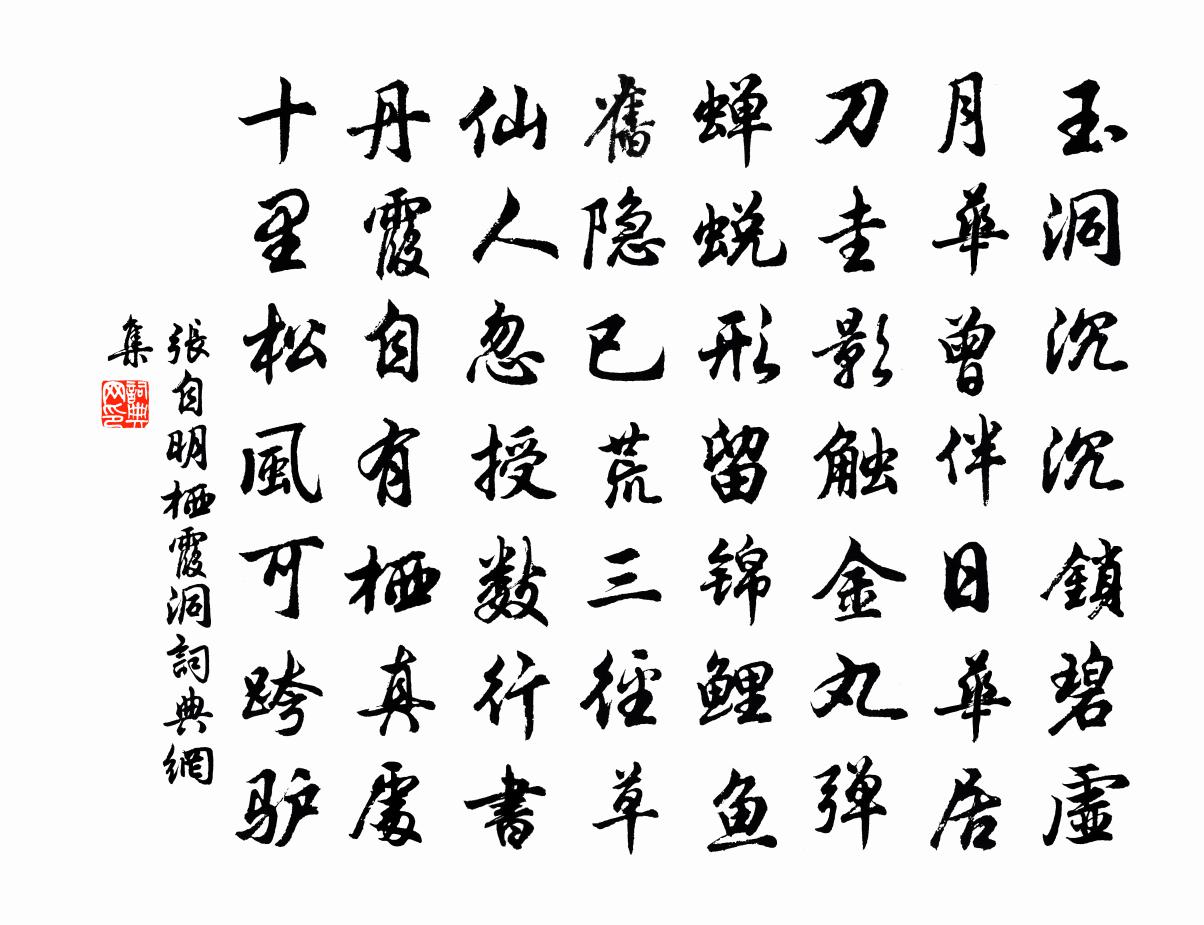 玉洞沉沉鎖碧虛
月華曾伴日華居
刀圭影触金丸弹
蝉蜕形留锦鲤鱼
舊隐已荒三徑草
仙人忽授数行書
丹霞自有栖真處
十里松風可跨驴
張自明栖霞洞詞典網
集
詞典网印